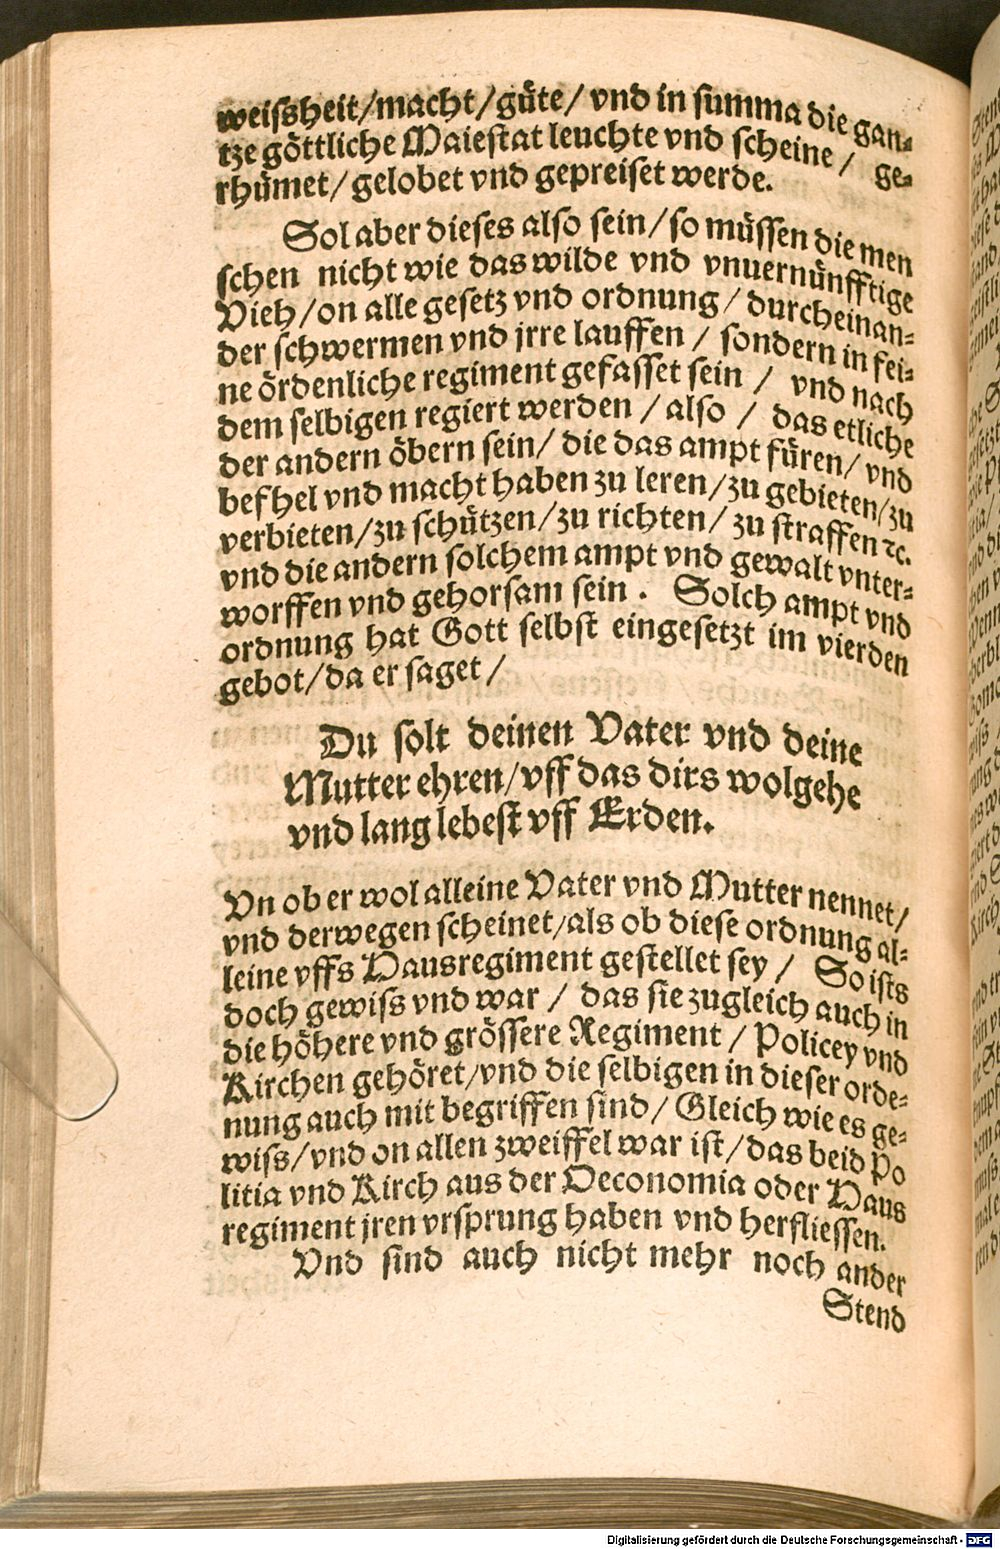 weiſsheit/macht/güte/ vnd in ſumma die gan-
tze göttliche Maieſtat leuchte vnd ſcheine / ge-
rhümet/ gelobet vnd gepreiſet werde.
Sol aber dieſes alſo ſein/ſo müſſen die men
ſchen nicht wie das wilde vnd vnuernünfftige
Vieh/on alle geſetz vnd ordnung/ durcheinan-
der ſchwermen vnd jrre lauffen / ſondern in fei-
ne ördenliche regiment gefaſſet ſein / vnd nach
dem ſelbigen regiert werden / alſo / das etliche
der andern öbern ſein/ die das ampt füren/ vnd
befhel vnd macht haben zu leren/zu gebieten/zu
verbieten/zu ſchützen/zu richten/ zu ſtraffen ꝛc.
vnd die andern ſolchem ampt vnd gewalt vnter-
worffen vnd gehorſam ſein . Solch ampt vnd
ordnung hat Gott ſelbſt eingeſetzt im vierden
gebot/da er ſaget /
Du ſolt deinen Vater vnd deine
Mutter ehren/vff das dirs wolgehe
vnd lang lebeſt vff Erden.
Vn ob er wol alleine Vater vnd Mutter nennet/
vnd derwegen ſcheinet/als ob dieſe ordnung al-
leine vffs Hausregiment geſtellet ſey / So iſts
doch gewiſs vnd war / das ſie zugleich auch in
die höhere vnd gröſſere Regiment / Policey vnd
Kirchen gehöret/vnd die ſelbigen in dieſer orde-
nung auch mit begriffen ſind/ Gleich wie es ge-
wiſs/vnd on allen zweiffel war iſt/das beid Po
litia vnd Kirch aus der Oeconomia oder Haus
regiment jren vrſprung haben vnd herflieſſen.
Vnd ſind auch nicht mehr noch ander
Stend
Digitalisierung gefördert durch die Deutsche Forschungsgemeinschaft - DFG